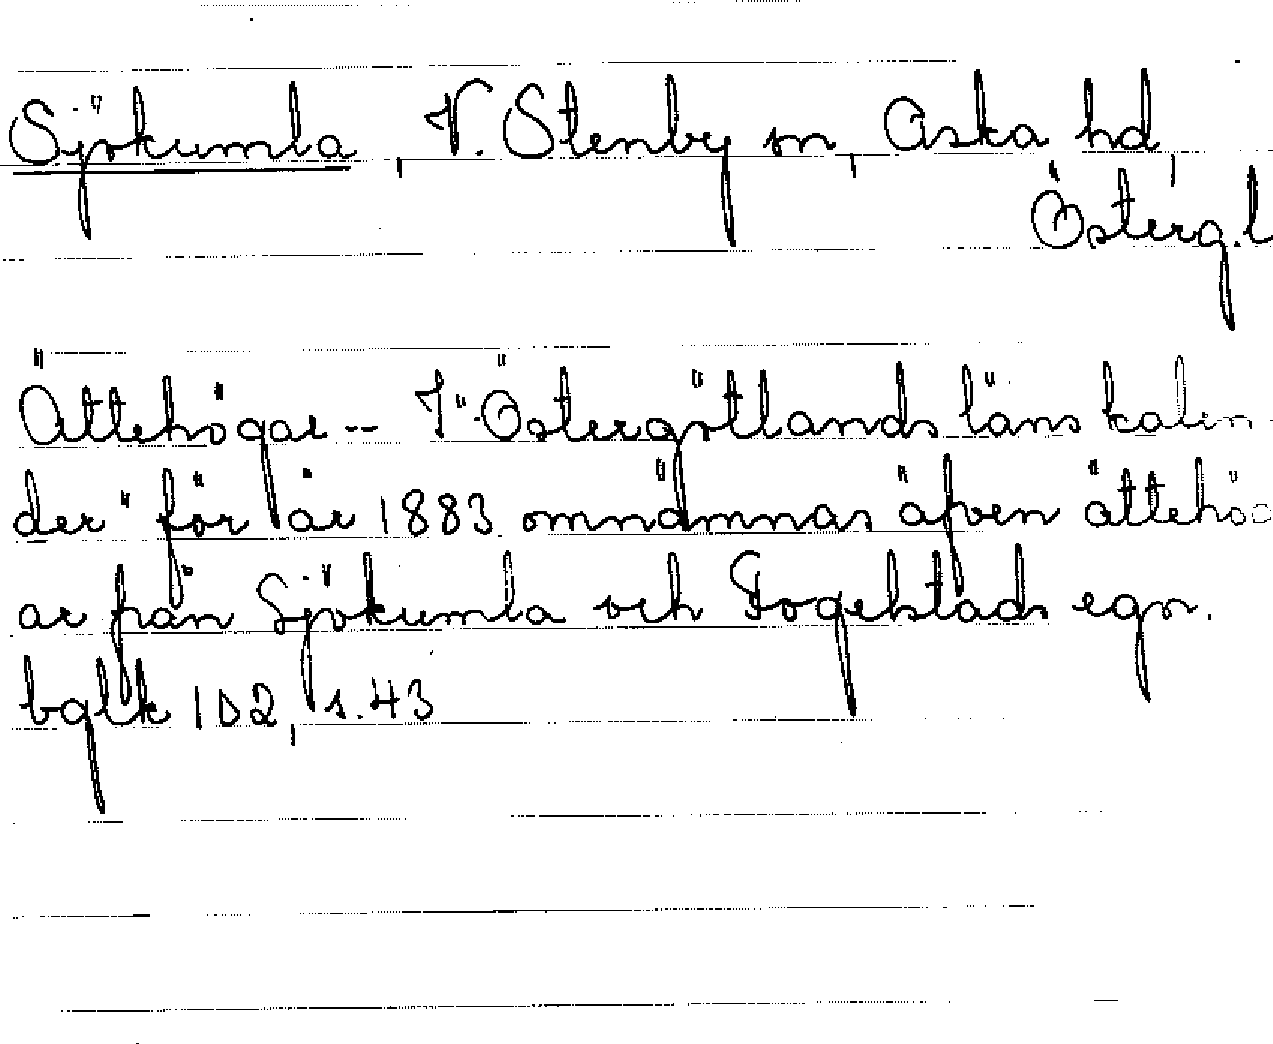 Sjökumla, V. Stenby sn, Aska hd,
Österg.l
Ättehögar -- I "Östergötlands läns kalen-
der" för år 1883 omnämnas äfven ättehög
ar från Sjökumla och Fogelstads egor.
bglk 1D2, s.43